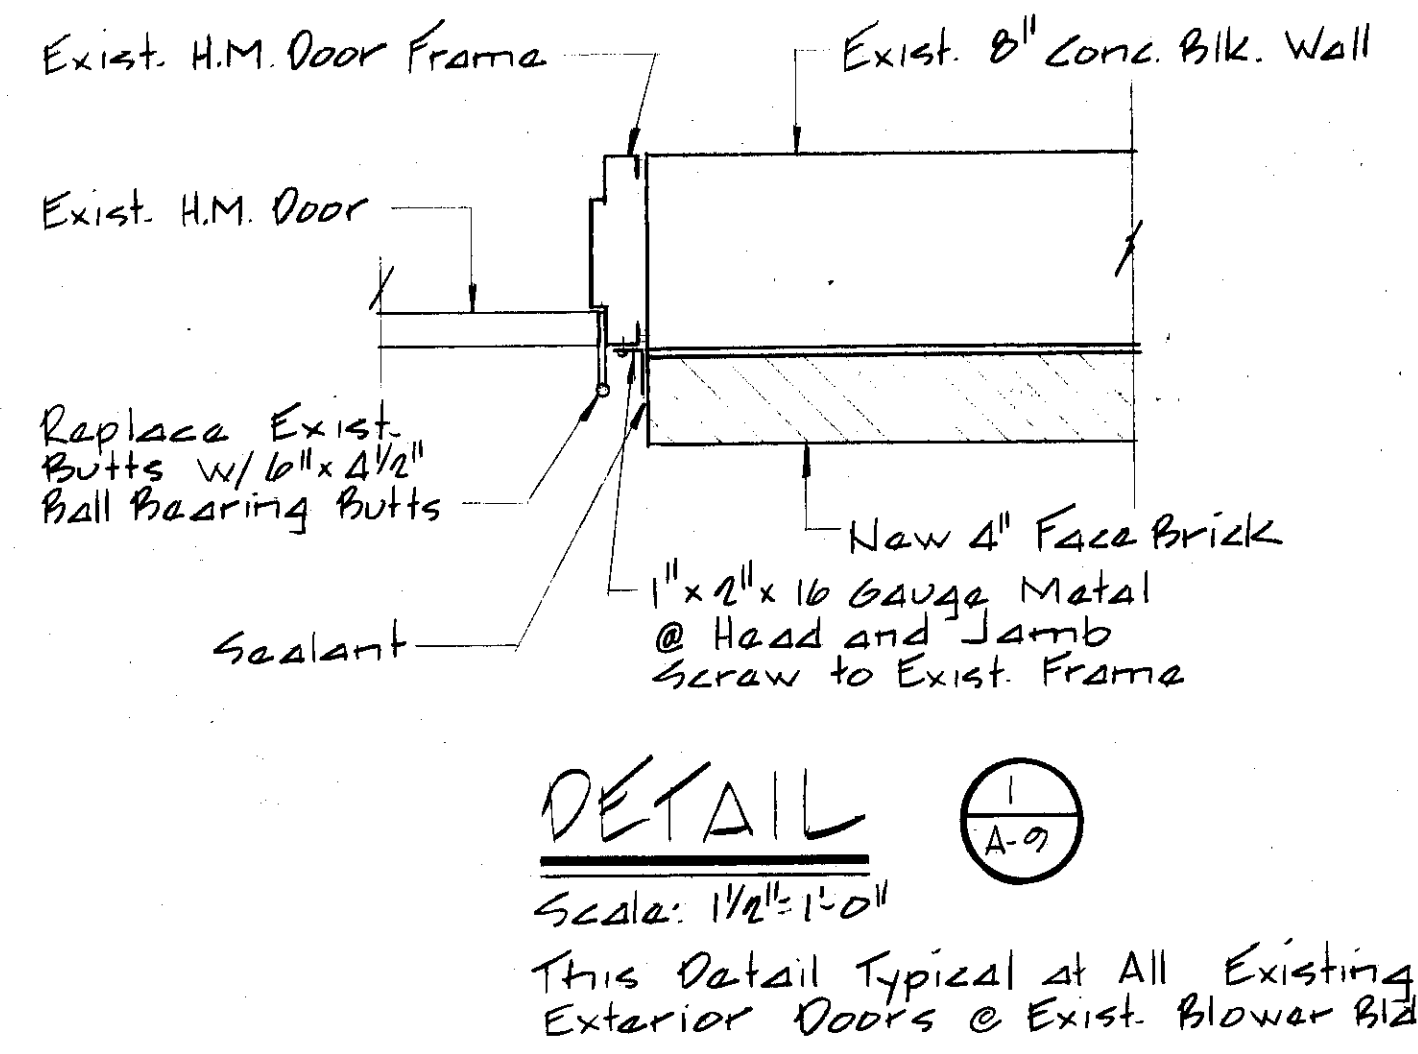 Exist. H.M. Door Frame
Exist. 8" Conc. Blk. Wall
Exist. H.M. Door
Replace Exist.
Butts w/ 6" x 4 1/2"
Ball Bearing Butts
New 4" Face Brick
1" x 2" x 16 Gauge Metal
@ Head and Jamb
Screw to Exist. Frame
Sealant
DETAIL
1
A-9
Scale: 1 1/2" = 1'-0"
This Detail Typical at All Existing
Exterior Doors @ Exist. Blower Bld